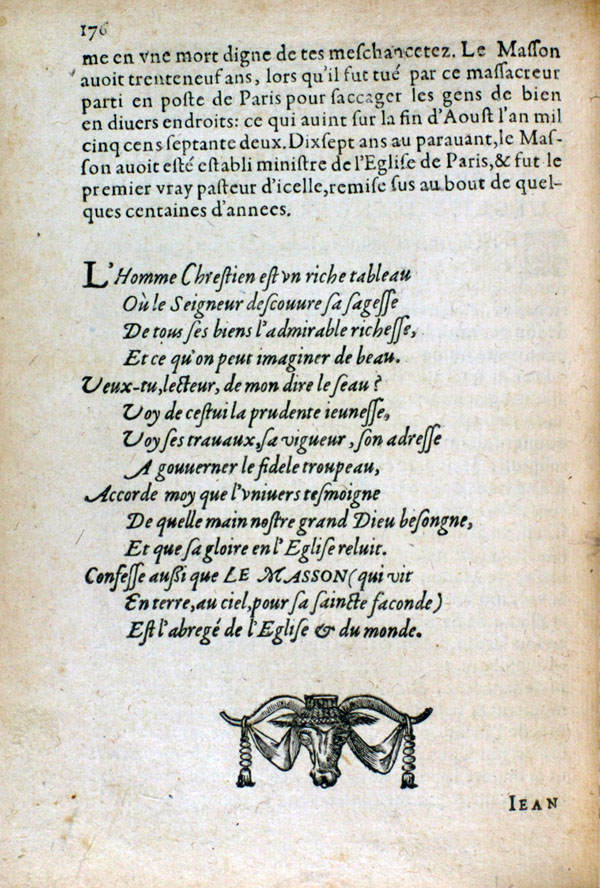 176
me en vne mort digne de tes meschancetez. Le Masson
auoit trenteneuf ans, lors qu'il fut tué par ce massacreur
parti en poste de Paris pour saccager les gens de bien
en diuers endroits: ce qui auint sur la fin d'Aoust l'an mil
cinq cens septante deux. Dixsept ans au parauant, le Mas-
son auoit esté establi ministre de l'Eglise de Paris, & fut le
premier vray pasteur d'icelle, remise sus au bout de quel-
ques centaines d'annees.
L'Homme Chrestien est vn riche tableau
Où le Seigneur descouure sa sagesse
De tous ses biens l'admirable richesse,
Et ce qu'on peut imaginer de beau.
Veux-tu, lecteur, de mon dire le seau?
Voy de cestui la prudente ieunesse,
Voy ses trauaux, sa vigueur, son adresse
A gouuerner le fidele troupeau,
Accorde moy que l'vniuers tesmoigne
De quelle main nostre grand Dieu besongne,
Et que sa gloire en l'Eglise reluit.
Confesse aussi que LE MASSON (qui vit
En terre, au ciel, pour sa saincte faconde)
Est l'abregé de l'Eglise & du monde.
IEAN